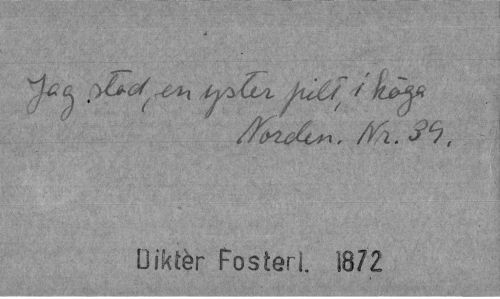 Jag stod, en yster pilt, i höga
Norden. Nr. 39.
Diktèr Fosterl. 1872